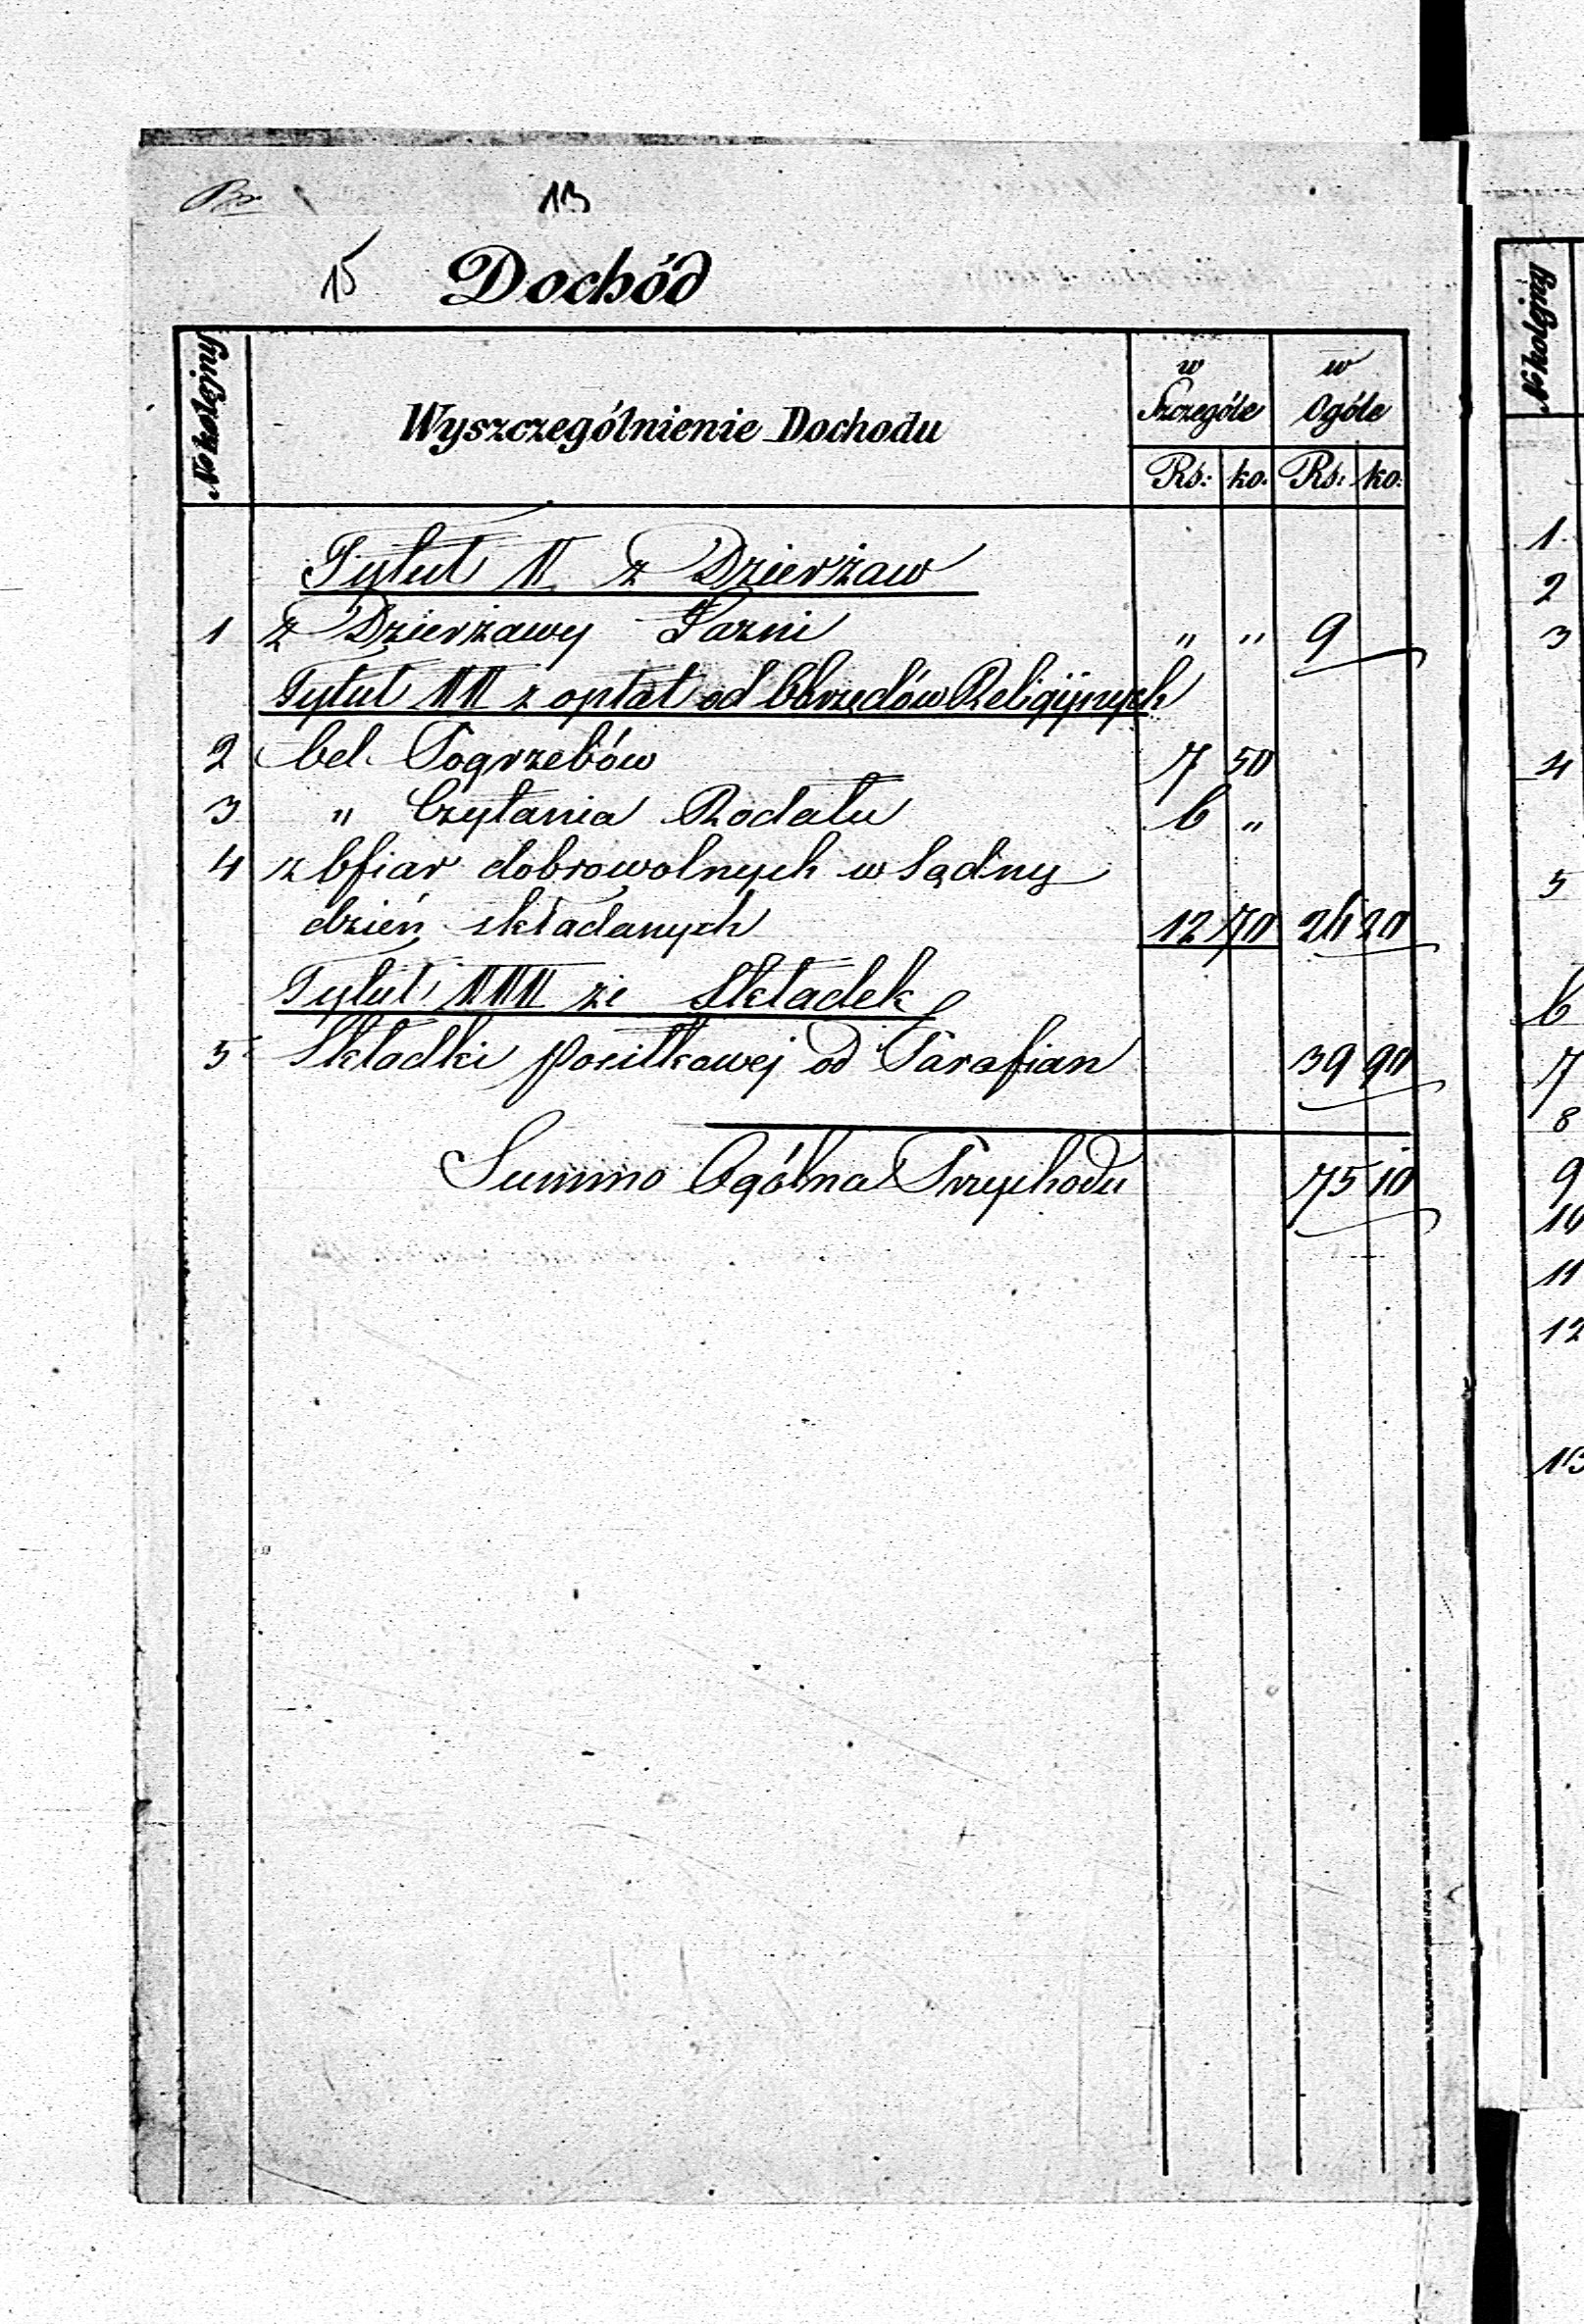 13
15 Dochód
No kolejny Wyszczególnienie Dochodu w Szczególe w Ogóle
Rs: ko. Rs: ko:
Tytuł I z Dzierżaw
1 z Dzierżawy Łazni " " 9
Tytuł II z opłat od Obrzędów Religijnych
2 Od Pogrzebów 7 50
3 " Czytania Rodału 6 "
4 z Ofiar dobrowolnych w Sądny
dzień składanych 12 70 26 20
Tytuł III ze Składek
5 Składki posiłkowej od Parafian 39 90
Summa Ogólna Przychodu 75 10
No kolejny
1
2
3
4
5
6
7
8
9
10
11
12
13